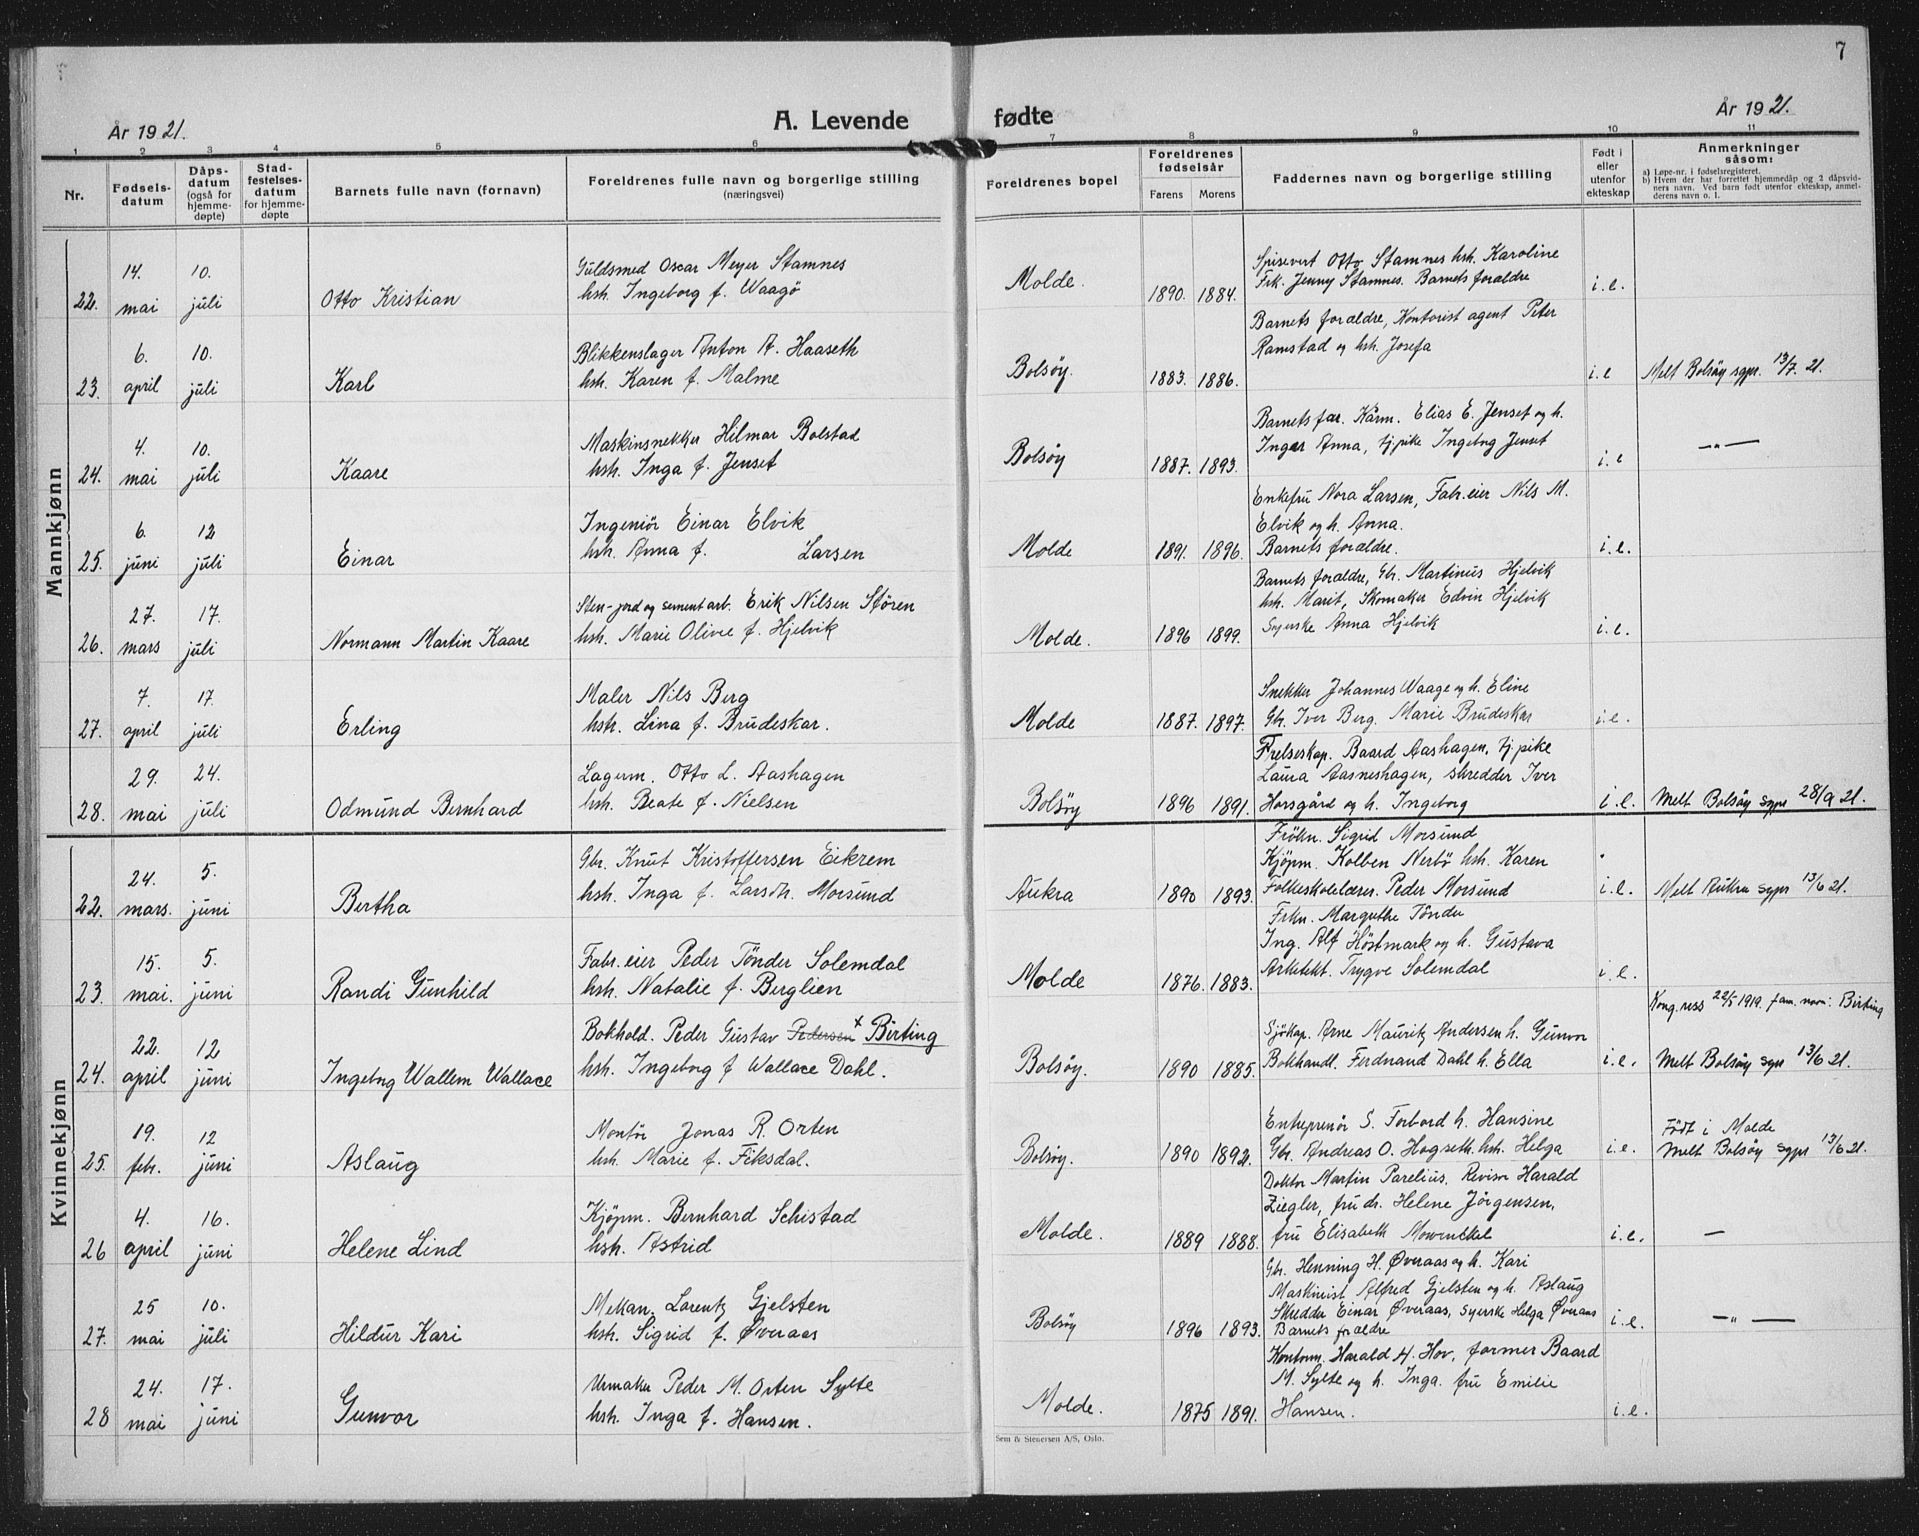 7
År 1921.
A. Levende fødte
År 1921.
1 2 3 4 5 6 7 8 9 10 11
Nr.
Fødsels-
datum
Dåps-
datum
(også for
hjemme-
døpte)
Stad-
festelses-
datum
for hjemme-
døpte
Barnets fulle navn (fornavn)
Foreldrenes fulle navn og borgerlige stilling
(næringsvei)
Foreldrenes bopel
Foreldrenes
fødselsår
Farens Morens
Faddernes navn og borgerlige stilling
Født i
eller
utenfor
ekteskap
Anmerkninger
såsom:
a) Løpe-nr. i fødselsregisteret.
b) Hvem der har forrettet hjemmedåp og 2 dåpsvid-
ners navn. Ved barn født utenfor ekteskap, anmel-
derens navn o. l.
Mannkjønn
22. 14. mai 10. juli Otto Kristian
Guldsmed Oscar Meyer Stamnes
hstr. Ingeborg f. Waagö
Molde. 1890. 1884.
Spisevert Otto Stamnes hstr. Karoline
Frk. Jenny Stamnes. Barnets foraldre
i.e.
23. 6. april 10. juli Karl
Blikkenslager Anton A. Haaseth
hstr. Karen f. Malme
Bolsöy. 1883. 1886.
Barnets foraldre, Kontorist agent Peter
Ramstad og hstr. Josefa
i.e Melt Bolsöy sgpr. 13/7. 21.
24. 4. mai 10. juli Kaare
Maskinsnekker Hilmar Bolstad
hstr. Inga f. Jenset
Bolsöy 1887. 1893.
Barnets far. Kårm. Elias E. Jenset og h.
Inger Anna, tj.pike Ingebrg Jenset
i.e —"—
25. 6. juni 12 juli Einar
Ingeniör Einar Elvik
hstr. Anna f. Larsen
Molde 1891. 1896.
Enkefru Nora Larsen, Fabr.eier Nils M.
Elvik og h. Anna.
Barnets foraldre.
i.e.
26. 27. mars 17. juli Normann Martin Kaare
Sten- jord og sementarb. Erik Nilsen Stören
hstr. Marie Olivie f. Hjelvik
Molde. 1896 1899.
Barnets foraldre, Gbr. Martinus Hjelvik
hstr. Marit, Skomaker Edvin Hjelvik
Syerske Anna Hjelvik
i.e.
27. 7. april 17. juli Erling
Maler Nils Berg
hstr. Lina f. Brudeskar.
Molde 1887. 1897.
Snekker Johannes Waage og h. Eline
Gbr. Iver Berg. Marie Brudeskar
i.e.
28. 29. mai 24. juli Odmund Bernhard
Lagerm. Otto L. Aashagen
hstr. Beate f. Nielsen
Bolsöy 1896 1891.
Frelseskap. Baard Aashagen, tj.pike
Laura Aasneshagen, skredder Iver
Horsgård og h. Ingeborg
i.e. Melt Bolsöy sgpr 28/9 21.
Kvinnekjønn
22. 24. mars. 5. juni Bertha
Gbr. Knut Kristoffersen Eikrem
hstr. Inga f. Larsdtr. Morsund
Aukra 1890 1893.
Frökn. Sigrid Morsund
Kjöpm. Kolben Nerbö hstr. Karen
Folkeskolelærer Peder Morsund
i.e. Melt Aukra sgpr 13/6 21.
23. 15. mai. 5. juni Randi Gunhild
Fabr.eier Peder Tönder Solemdal
hstr. Natalie f. Berglien
Molde 1876. 1883.
Frkn. Margrethe Tönder
Ing. Alf Höstmark og h. Gustava
Arkitekt. Trygve Solemdal
i.e.
24. 22. april 12 juni Ingebrg Wallem Wallace
Bokhold. Peder Gustav Pedersen x Birting
hstr. Ingeborg f Wallace Dahl.
Bolsöy. 1890 1885.
Sjökap. Arne Mauritz Andersen h. Gunvor
Bokhandl. Ferdnand Dahl h. Ella
i.e. Kong.ress 22/5 1919. fam. navn: Birting
Melt Bolsöy sgpr 13/6 21.
25. 19. febr. 12 juni Aslaug
Montör Jonas R. Orten
hstr. Marie f. Fiksdal.
Bolsöy. 1890 1892.
Entreprenör S. Forbord h. Hansine
Gbr. Andreas O. Hogseth hstr. Helga
i.e. Födt i Molde
Melt Bolsöy sgpr 13/6 21.
26 4. april 16. juni Helene Lind
Kjöpm. Bernhard Schistad
hstr. Astrid
Molde. 1889 1888.
Doktor Martin Parelius. Revisor Harald
Ziegler, fru dr. Helene Jörgensen,
fru Elisabeth Mowinckel
i.e. —
27. 25 mai 10. juli Hildur Kari
Mekan. Lorentz Gjelsten
hstr. Sigrid f. Øveraas
Bolsöy 1896 1893.
Gbr. Henning H. Øveraas og h. Kari
Maskinist Alfred Gjelsten og h. Aslaug
Skredder Einar Øveraas, Syerske Helga Øveraas
Barnets foraldre
i.e. —"—
28 24. mai 17. juni Gunvor
Urmaker Peder M. Orten Sylte
hstr. Inga f. Hansen.
Molde. 1875 1891.
Kontorm. Harald H. Hov, formner Baard
M. Sylte og h. Inga. fru Emilie
Hansen.
i.e.
Sem & Stenersen A/S, Oslo.